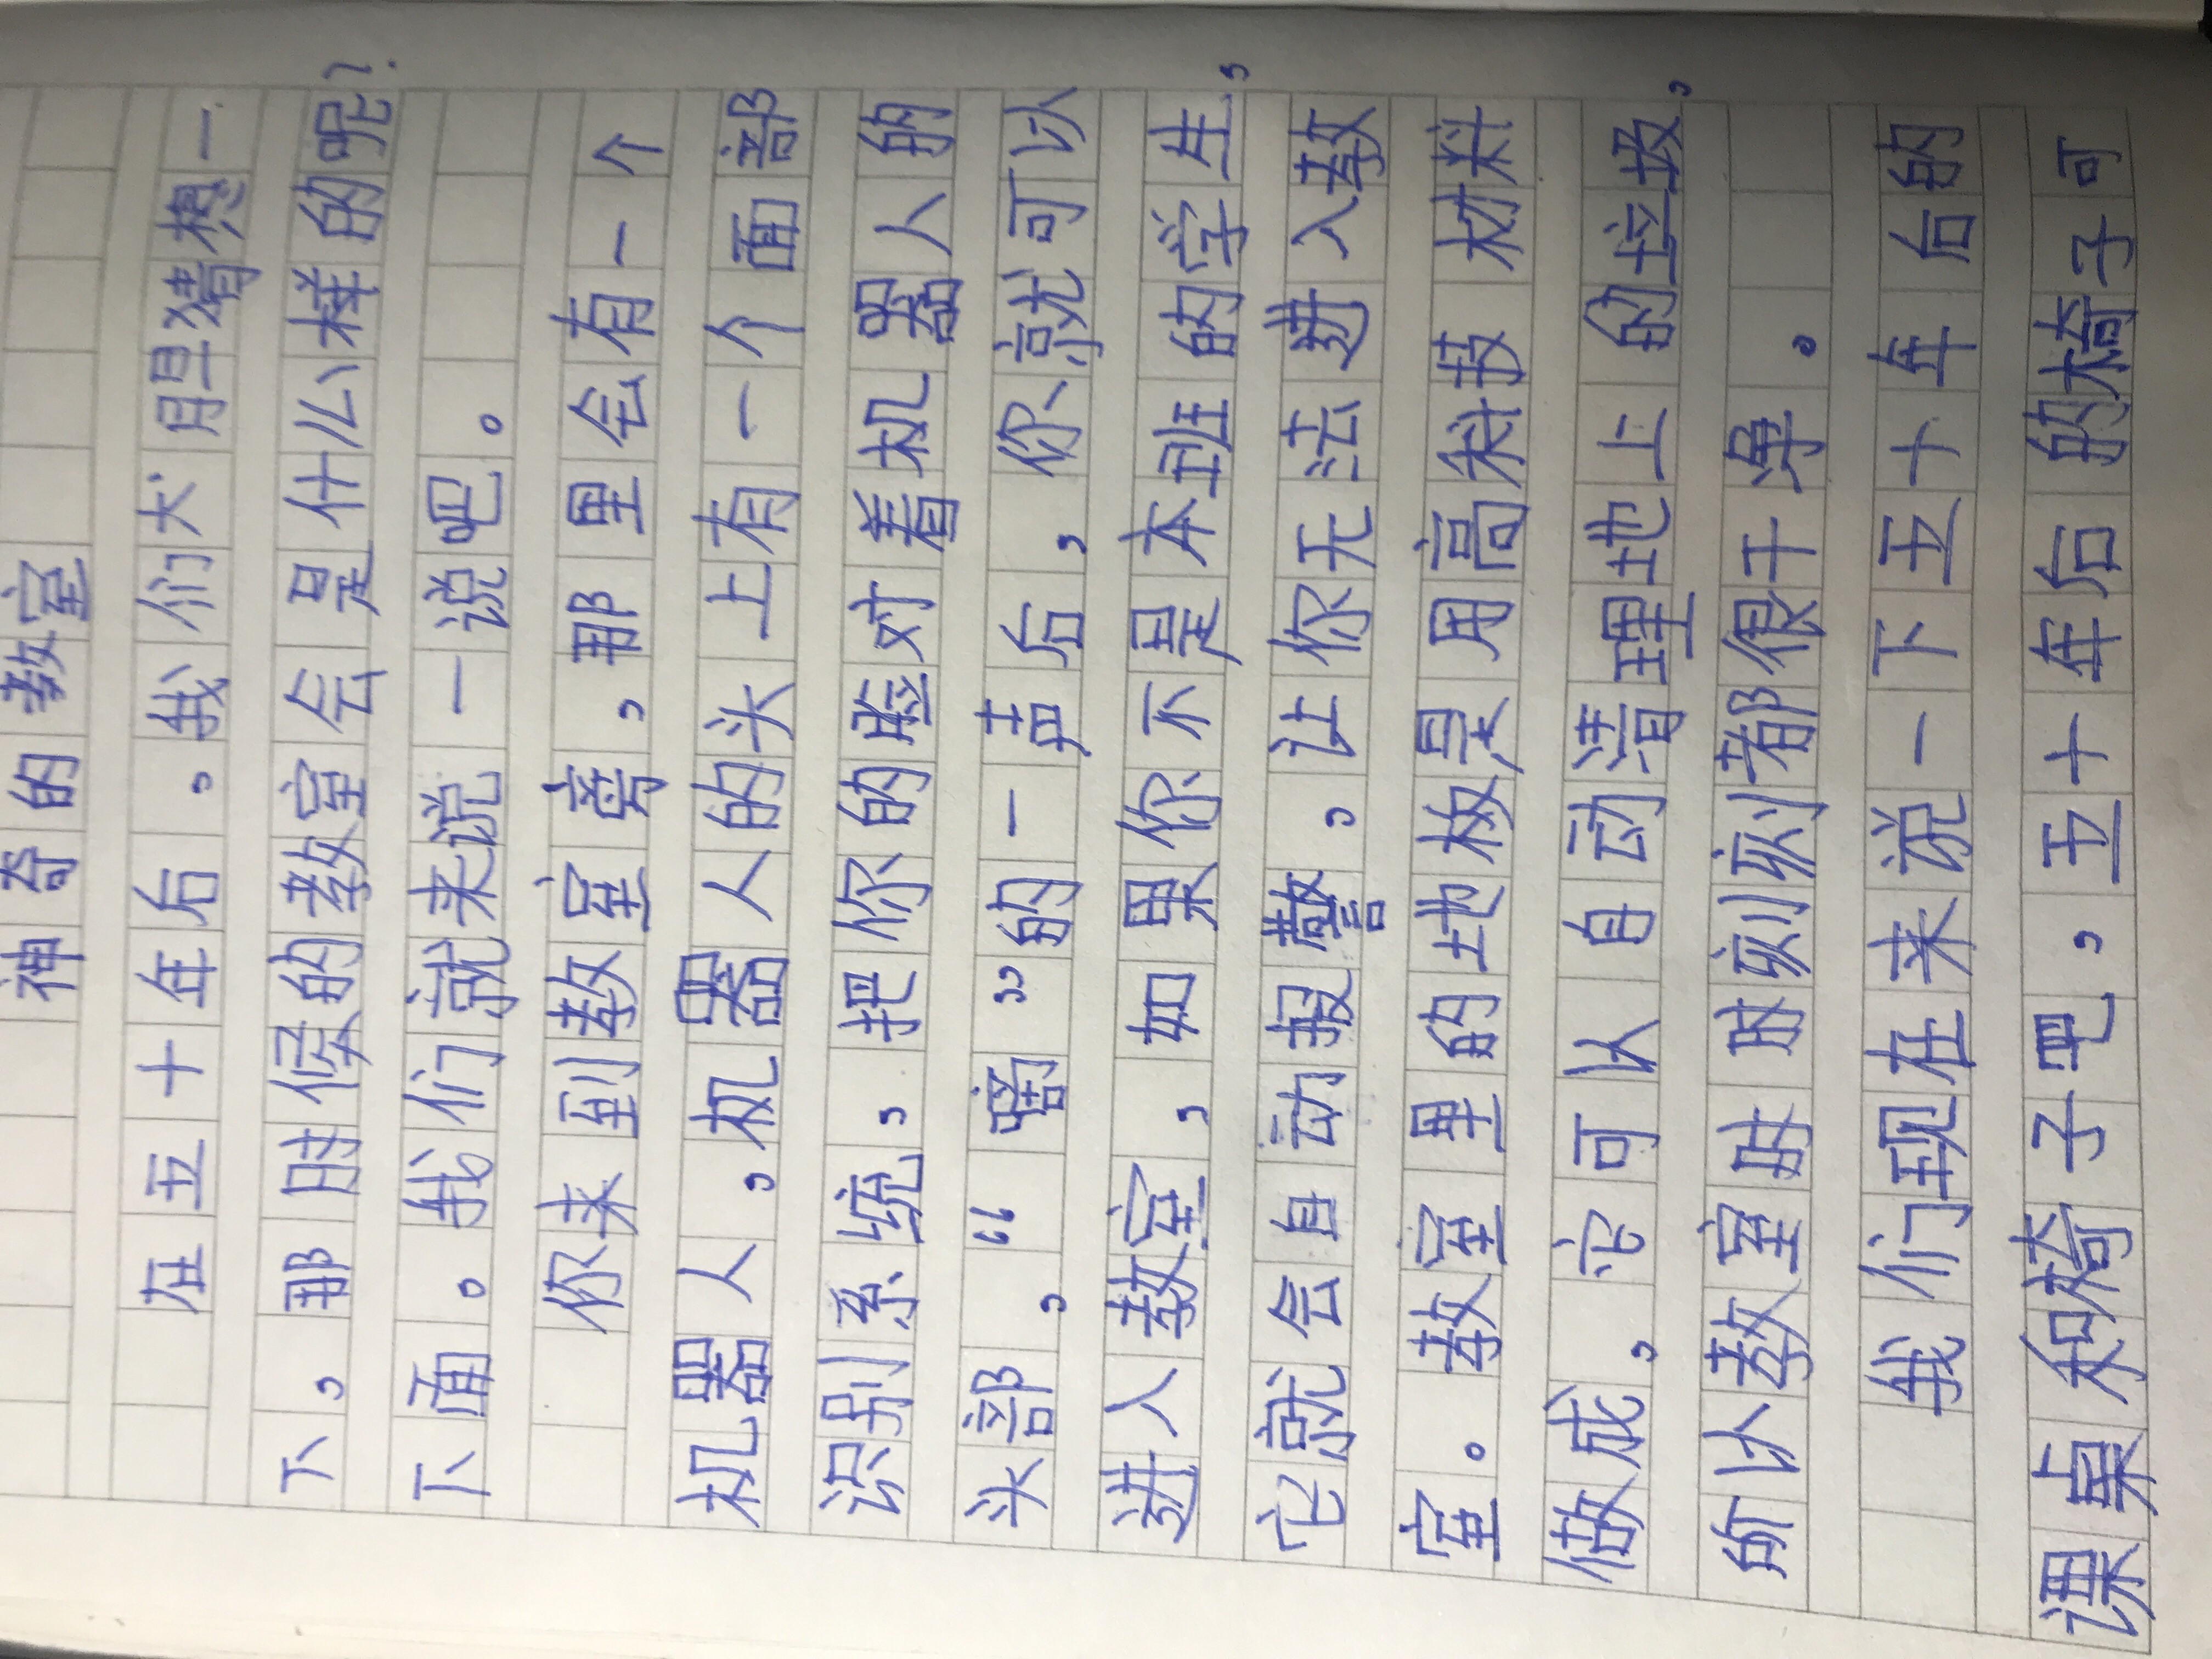 神奇的教室
在五十年后。我们大胆猜想一
下,那时候的教室会是什么样的呢?
下面。我们就来说一说吧。
你来到教室旁,那里会有一个
机器人,机器人的头上有一个面部
识别系统,把你的脸对着机器人的
头部,“嘀”的一声后,你就可以
进入教室,如果你不是本班的学生,
它就会自动报警,让你无法进入教
室。教室里的地板是用高科技材料
做成,它可以自动清理地上的垃圾,
所以教室时时刻刻都很干净。
我们现在来说一下五十年后的
课桌和椅子吧,五十年后的椅子可